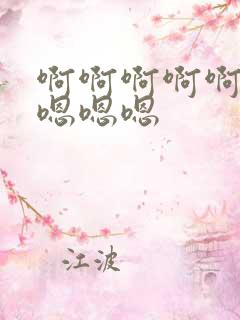 啊啊啊啊啊
嗯嗯嗯
江波